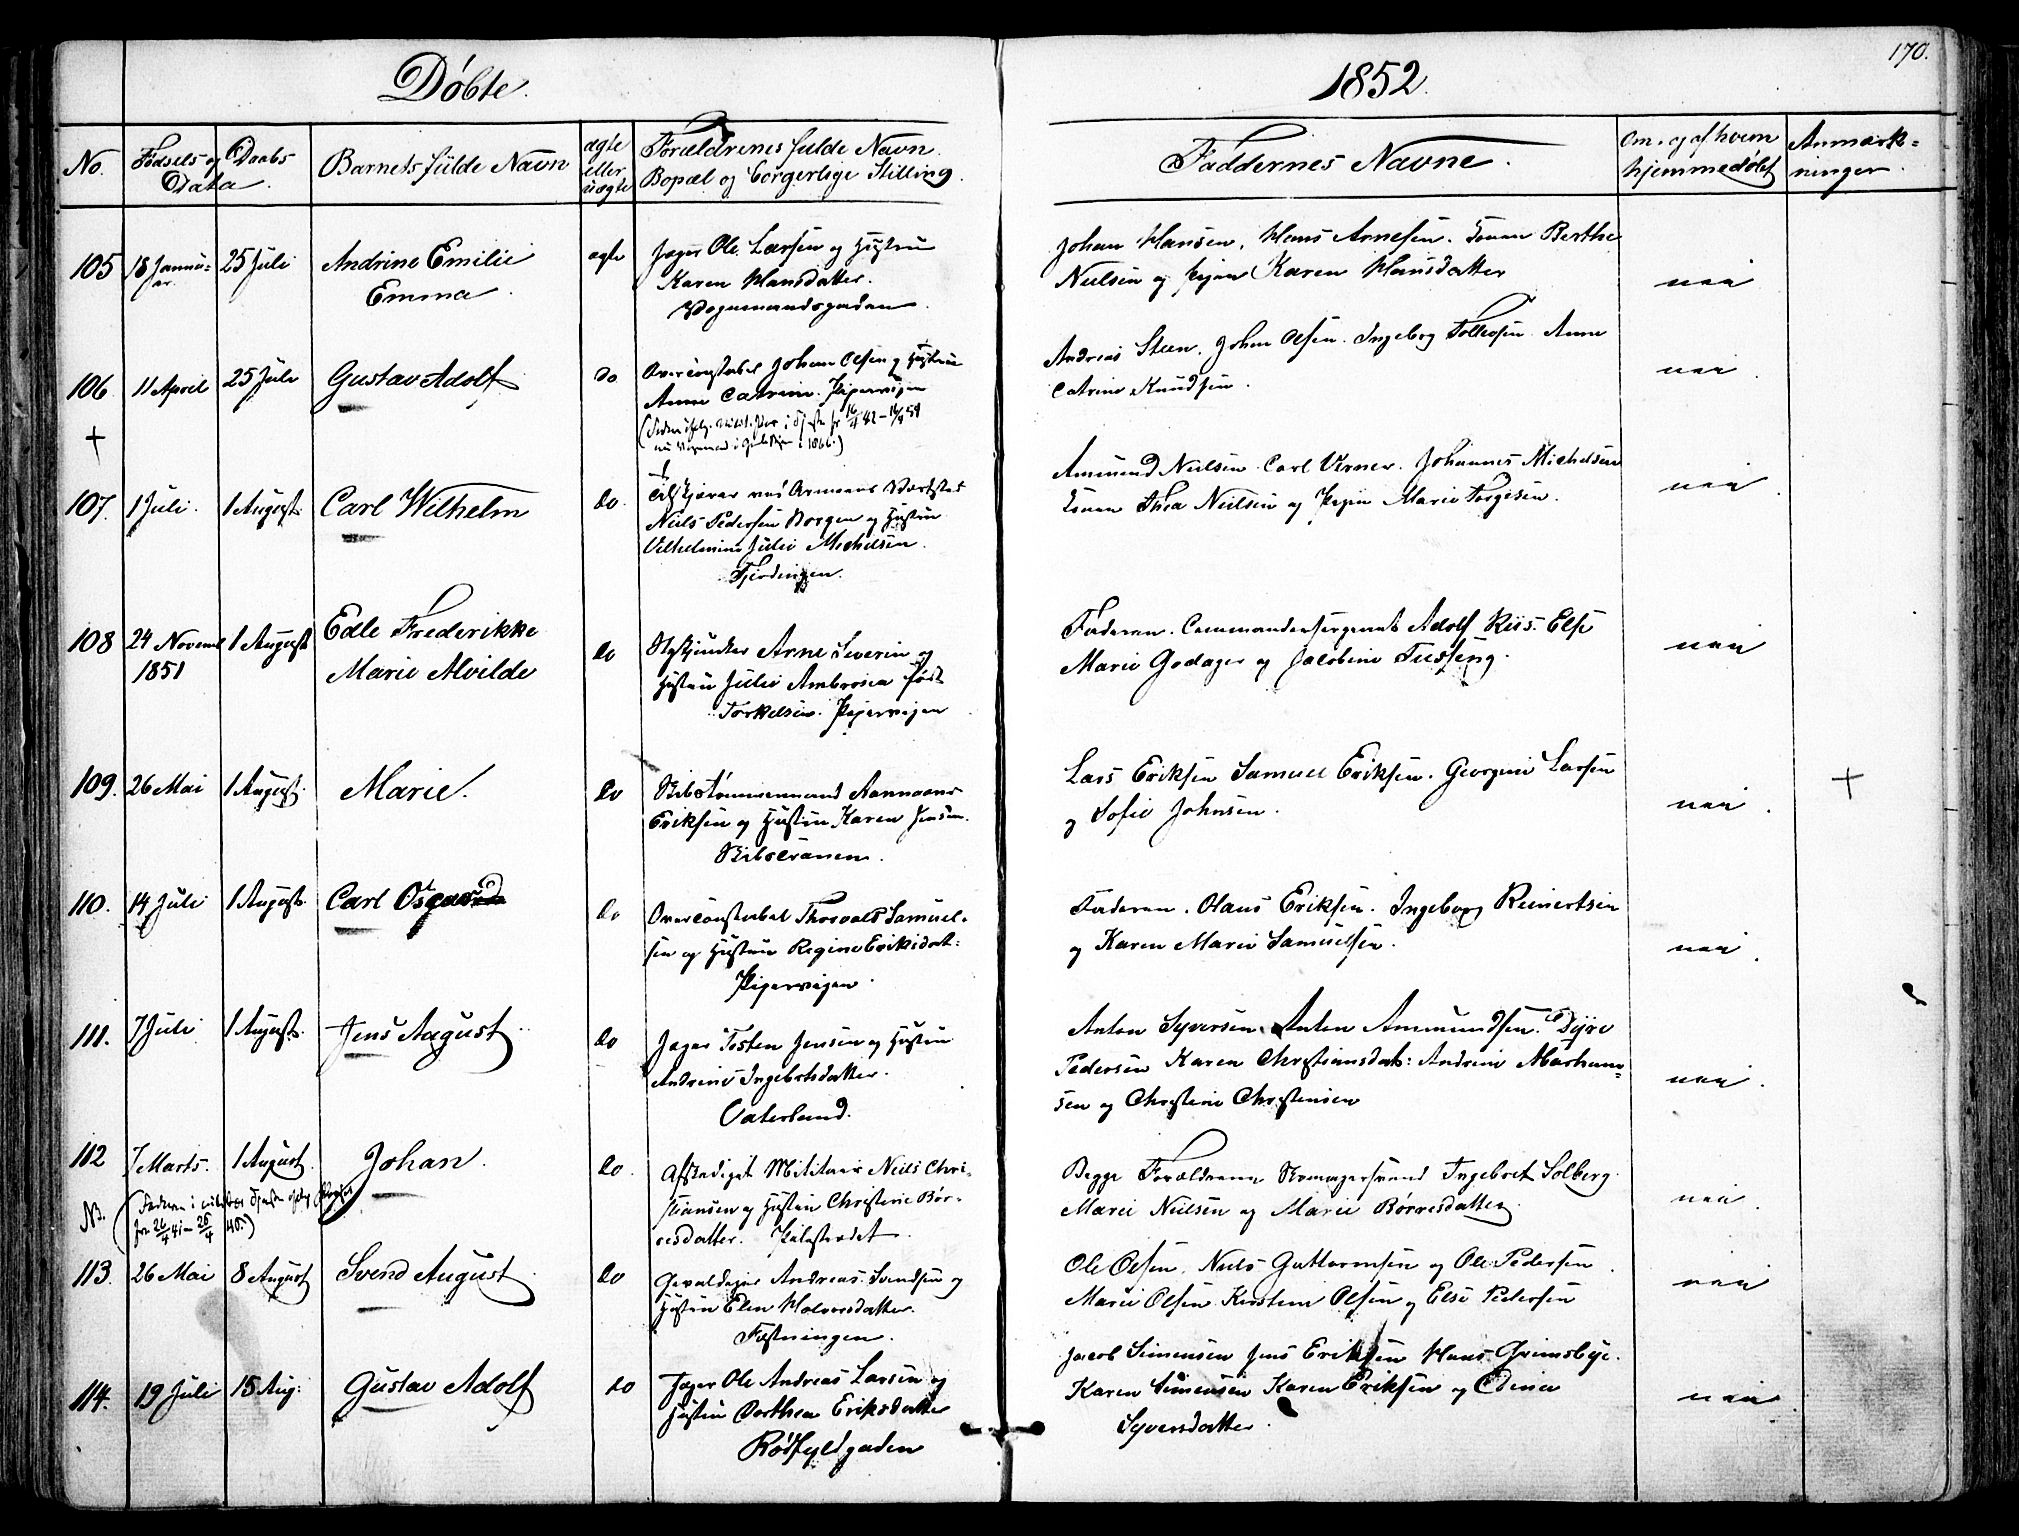 170.
Døbte. 1852.
No. Fødsels og Daabs Data. Barnets fulde Navn ægte eller uægte Forældrenes fulde Navn. Bopæl og borgerlige Stilling. Faddernes Navne. Om og af hvem hjemmedøbt Anmærkninger.
105 18 Januar 25 Juli Andrine Emilie
Emma
ægte
Jæger Ole Larsen og Hustru
Karen Hansdatter.
Vognmandsgaden
Johan Hansen, Hans Arnesen. Konen Berthe
Nielsen og Pigen Karen Hansdatter
nei
106 11 April 25 Juli Gustav Adolf do
Overconstabel Johan Olsen og Hustru
Anne Catrine. Pipervigen
1866.)
Andreas Steen. Johan Olsen. Ingeborg Anne
Catrine Knudsen.
nei
107. 1 Juli. 1 August Carl Wilhelm do.
Niels Pedersen Borgen og Hustru
Vilhelmine Julie Michelsen.
Fjerdingen.
Amund Nielsen. Carl Verner. Johannes Michelsen
Konen Thea Nielsen og Pigen Marie Torgesen.
nei
108 24 Novemb 1 August Edle Frederikke
1851 Marie Alvilde
do
Arne Severin og
Hustru Julie Ambrosia født
Torkelsen. Pipervigen
Faderen. Commandeersergeant Adolf Riis. Else
Marie Godager og Jacobine Tusseng.
nei
109. 26 Mai 1 August Marie. do
Skibstømmermand
Eriksen og Hustru Karen Jensen.
Lars Eriksen Samuel Eriksen. Georgine Larsen
og Sofie Johnsen.
nei.
+
110. 14 Juli 1 August Carl do
Overconstabel Thorvald Samuel-
sen og Hustru Regine Eriksdat:
Pipervigen.
Faderen. Olaus Eriksen. Ingeborg Reinertsen
og Karen Marie Samuelsen.
nei.
111. 7 Juli 1 August Jens August do
Jæger Tosten Jensen og Hustru
Andrine Ingebretsdatter.
Vaterland.
Anton Syversen. Anton Ammundsen.
Pedersen Karen Christiansdat: Andrine
sen og Christine Christensen
nei.
112 7 Marts. 1 August Johan. do.
Afskediget Militair Niels Chri-
stiansen og Hustru Christine Bør-
resdatter. Pilestrædet.
Begge Forældrene Ingebret Solberg.
Marie Nielsen og Marie Børresdatter
nei.
NB.
113. 26 Mai 8 August Svend August do
Gevaldiger Andreas Svendsen og
Hustru Elen Halvorsdatter.
Fæstningen.
Ole Olsen. Niels Guttormsen og Ole Pedersen.
Marie Olsen Kirstine Olsen og Else Pedersen
nei
114. 19 Juli 15 Aug: Gustav Adolf do
Jæger Ole Andreas Larsen og
Hustru Dorthea Eriksdatter
Rødfyldgaden
Jacob Simensen Jens Eriksen Hans Grimsbye.
Karen Simensen Karen Eriksen og
Syversdatter.
nei.